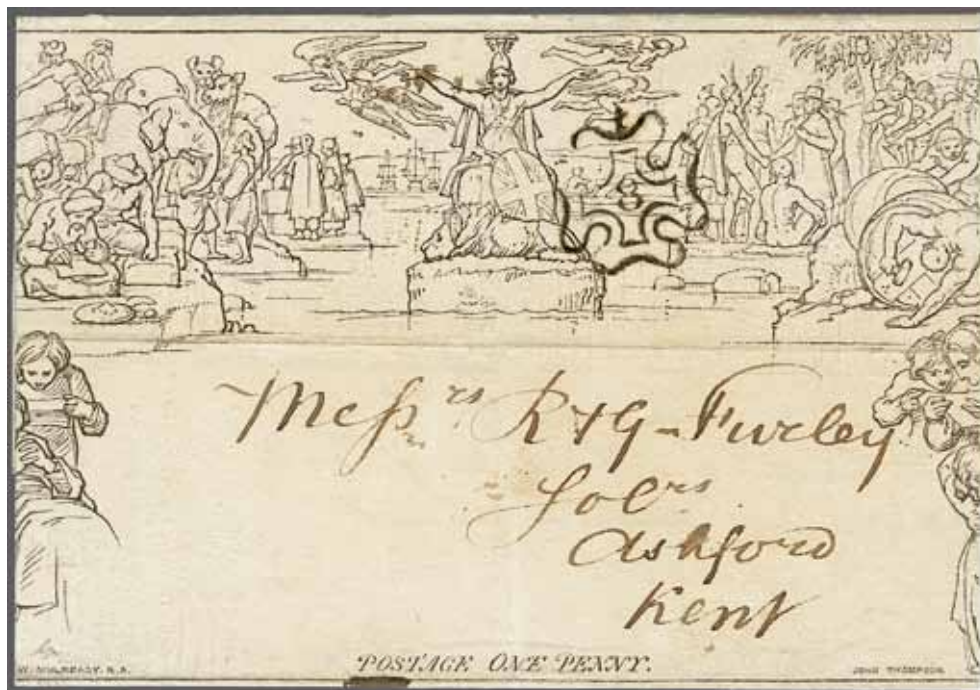 Messrs R & G - Furley
Solrs
Ashford
Kent
W. MULREADY. R.A.
POSTAGE ONE PENNY.
JOHN THOMPSON